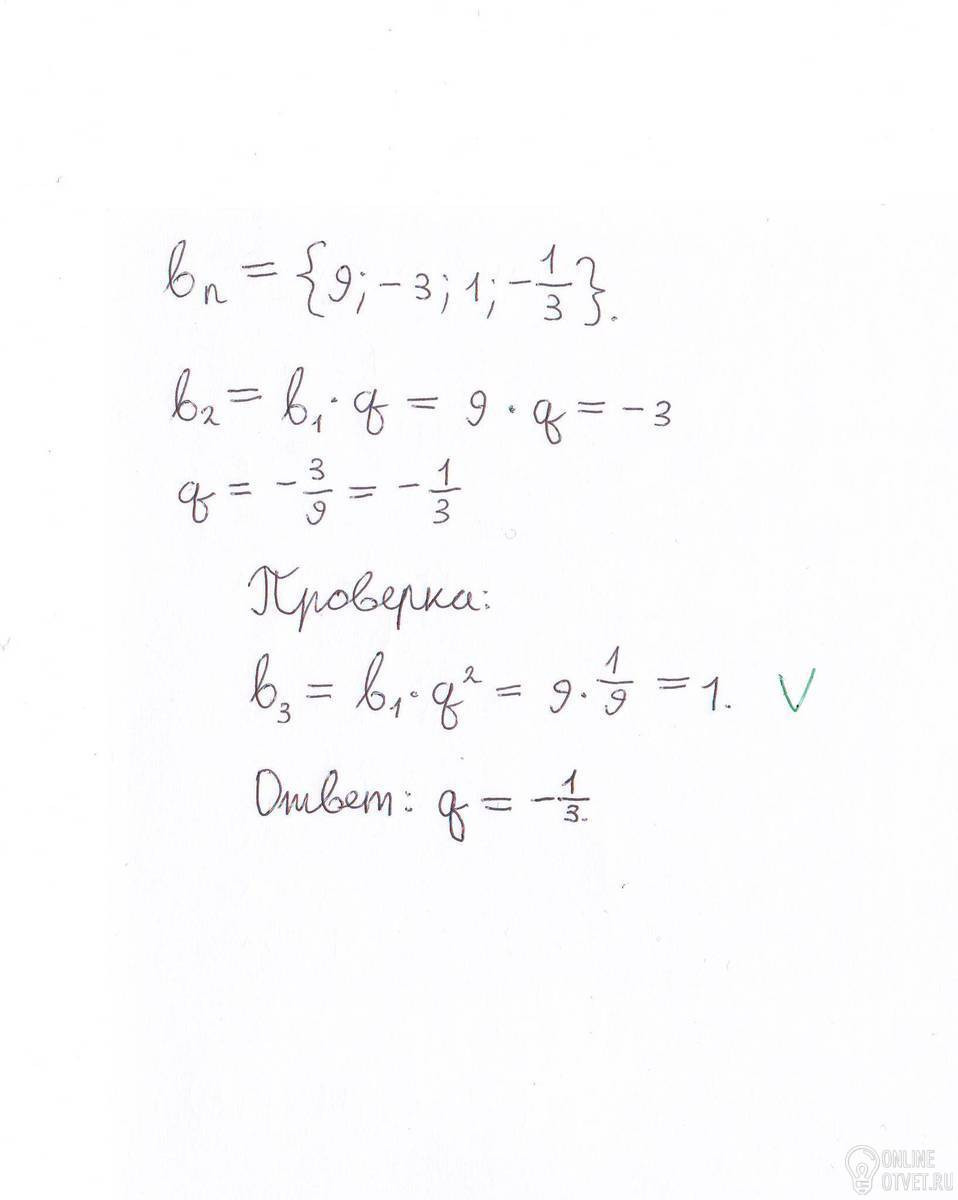 bₙ = {9; -3; 1; -1/3}.
b₂ = b₁ · q = 9 · q = -3
q = -3/9 = -1/3
Проверка:
b₃ = b₁ · q² = 9 · 1/9 = 1. V
Ответ: q = -1/3.
ONLINE
OTVET.RU